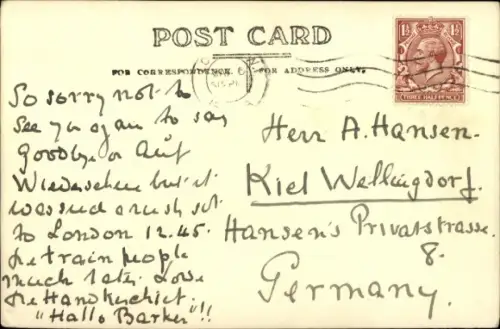 POST CARD
FOR CORRESPONDENCE
FOR ADDRESS ONLY.
THREE HALFPENCE
So sorry not to
see you again to say
Goodbye or Auf
Wiedersehen but it
was such a rush
to London 12.45.
train people
much later. Love
the Handkerchief.
"Hallo Barker"!!
Herr A. Hansen.
Kiel Wellingdorf.
Hansen's Privatstrasse.
8.
Germany.